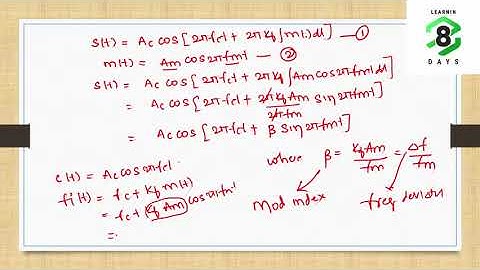 S(t) = Ac cos [2πfct + 2πKf∫m(t)dt] — ①
m(t) = Am cos 2πfmt — ②
S(t) = Ac cos [2πfct + 2πKf∫Am cos 2πfmt dt]
= Ac cos [2πfct + 2πKf Am / 2πfm sin 2πfmt]
= Ac cos [2πfct + β sin 2πfmt]
c(t) = Ac cos 2πfct
where β = Kf Am / fm = Δf / fm
fi(t) = fc + Kf m(t)
= fc + Kf Am cos 2πfmt
=
Mod index
freq deviation
LEARN IN
8
DAYS